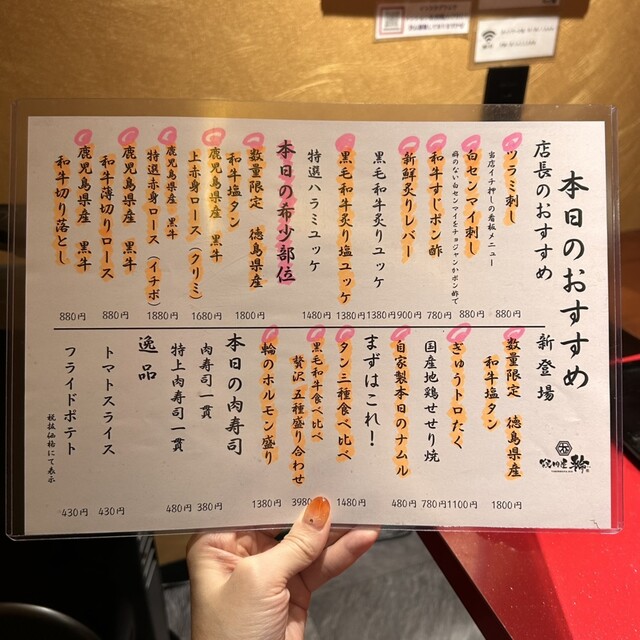 本日のおすすめ
店長のおすすめ
ツラミ刺し
880円
当店イチ押しの看板メニュー
白センマイ刺し
880円
癖のない白センマイをチョジャンかポン酢で
和牛すじポン酢
780円
新鮮炙りレバー
900円
黒毛和牛炙りユッケ
1380円
黒毛和牛炙り塩ユッケ
1380円
特選ハラミユッケ
1480円
本日の希少部位
数量限定 徳島県産
和牛塩タン
1800円
鹿児島県産 黒牛
上赤身ロース(クリミ)
1680円
鹿児島県産 黒牛
特選赤身ロース(イチボ)
1880円
鹿児島県産 黒牛
和牛薄切りロース
880円
鹿児島県産 黒牛
和牛切り落とし
880円
新登場
数量限定 徳島県産
和牛塩タン
1800円
ぎゅうトロたく
1100円
国産地鶏せせり焼
780円
自家製本日のナムル
480円
まずはこれ!
タン三種食べ比べ
1480円
黒毛和牛食べ比べ
贅沢 五種盛り合わせ
3980
輪のホルモン盛り
1380円
本日の肉寿司
肉寿司一貫
380円
特上肉寿司一貫
480円
逸品
トマトスライス
430円
フライドポテト
430円
税抜価格にて表示